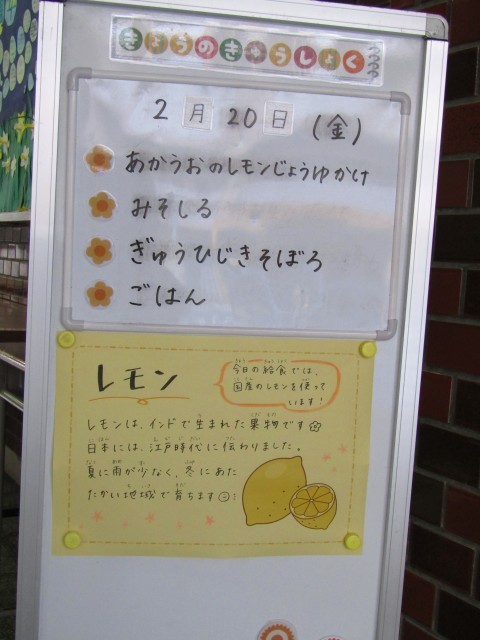 きょうのきゅうしょく
2月20日(金)
あかうおのレモンじょうゆかけ
みそしる
ぎゅうひじきそぼろ
ごはん
レモン
今日の給食では、
国産のレモンを使って
います!
レモンは、インドで生まれた果物です
日本には、江戸時代に伝わりました。
夏に雨が少なく、冬にあた
たかい地域で育ちます